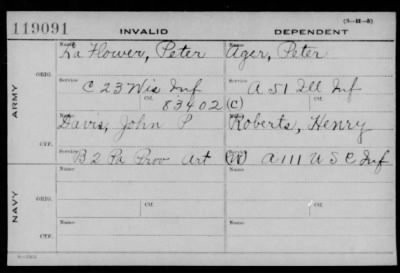 (3-11-5)
119091 INVALID DEPENDENT
ARMY
ORIG.
Name Name
La Flower, Peter Ager, Peter
Service Service
C 23 Wis Inf A 51 Ill Inf
Ctf. Ctf.
83402 (C)
CTF.
Name Name
Davis, John P Roberts, Henry
Service Service
B 2 Pa Prov Art (W) A 111 U S C Inf
NAVY
ORIG.
Name Name
Ctf. Ctf.
CTF.
Name Name
Ctf. Ctf.